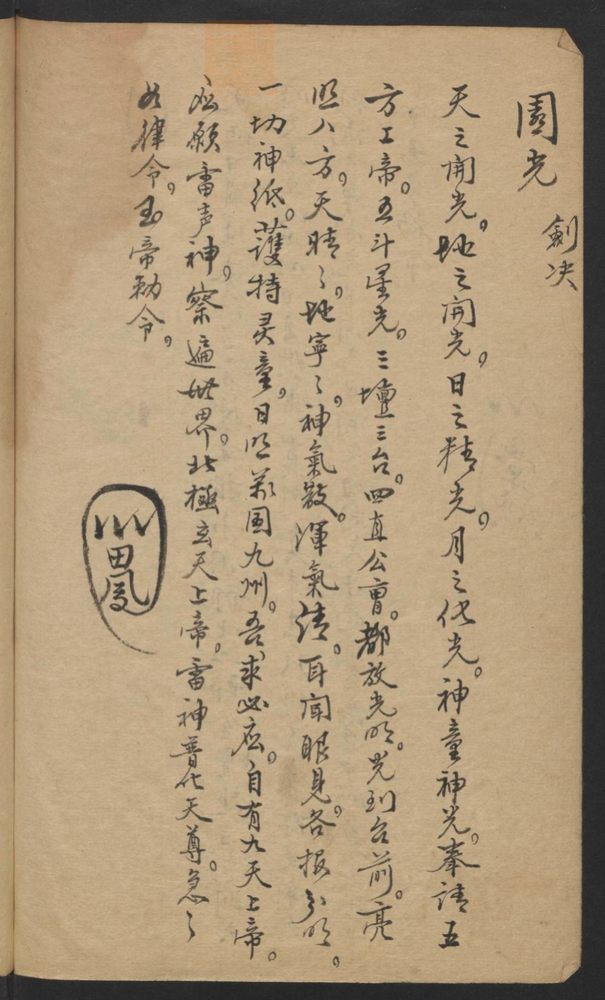 圓光 劍决
天之開光。地之開光。日之精光。月之化光。神童神光。奉請五
方工帝。五斗星光。三壇三台。四直公曹。都放光明。光到台前。亮
照八方。天晴〻。地寧〻。神氣散。渾氣清。耳闻眼見。各报分明。
一切神祇。護持灵童。日照萬国九州。吾求必应。自有九天上帝。
应願雷声神。察遍世界。北極玄天上帝。雷神普化天尊。急〻
如律令。玉帝勅令。
田鳳